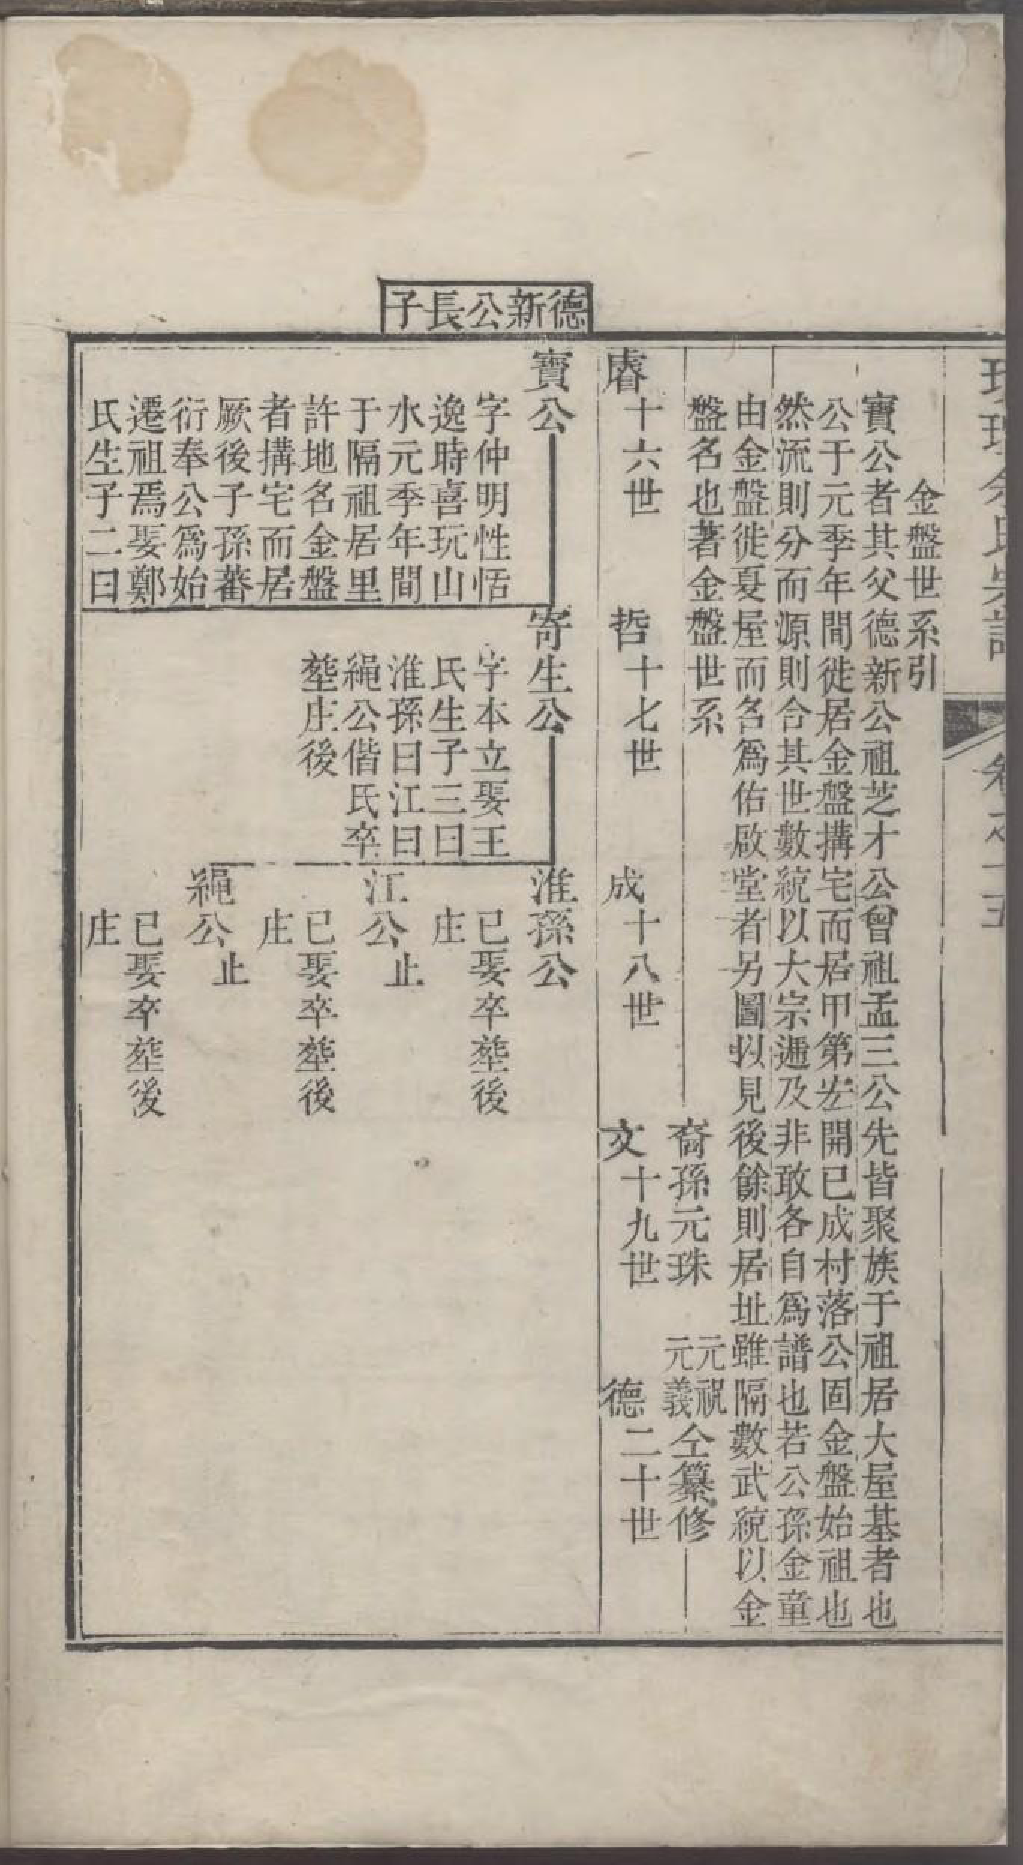 金盤世系引
寶公者其父德新公祖芝才公曾祖孟三公先皆聚族于祖居大屋基者也
公于元季年間徙居金盤搆宅而居甲第宏開已成村落公固金盤始祖也
然流則分而源則合其世數統以大宗遞及非敢各自爲譜也若公孫金童
由金盤徙夏屋而名爲佑啟堂者另圖以見後餘則居址雖隔數武統以金
盤名也著金盤世系
裔孫元珠 元祝 元義 仝纂修
睿十六世 哲十七世 成十八世 文十九世 德二十世
德新公長子
寶公
字仲明性恬
逸時喜玩山
水元季年間
于隔祖居里
許地名金盤
者搆宅而居
厥後子孫蕃
衍奉公爲始
遷祖焉娶鄭
氏生子二曰
寄生公
字本立娶王
氏生子三曰
淮孫曰江曰
繩公偕氏卒
塟庄後
淮孫公
已娶卒塟後
庄
江公止
已娶卒塟後
庄
繩公止
已娶卒塟後
庄